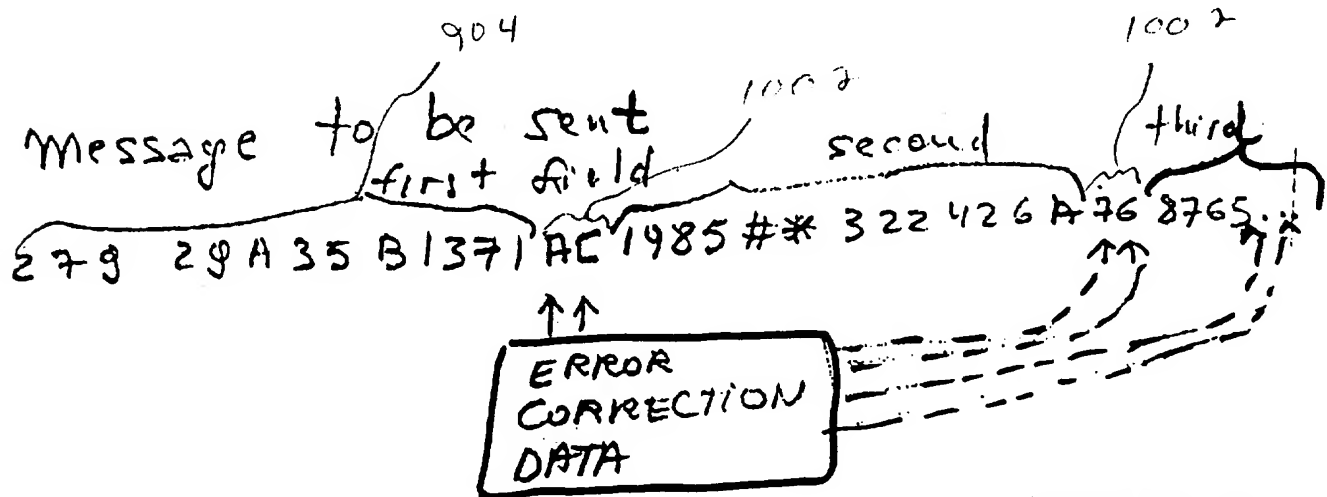 904
1002
1002
Message to be sent
first field second third
279 29A35B1371AC1985#*322426A768765..
ERROR
CORRECTION
DATA